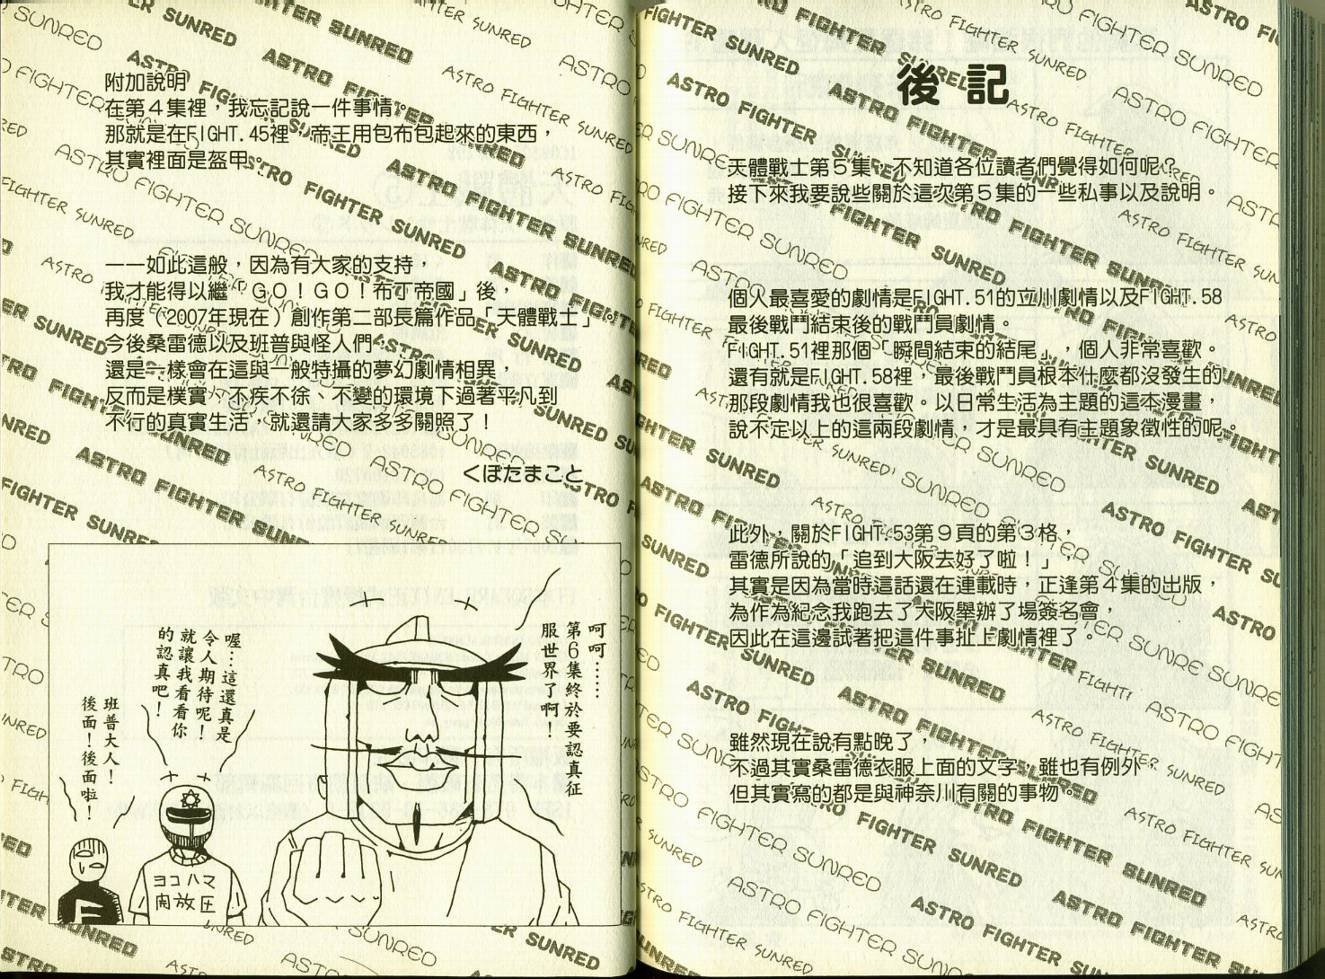 後記
天體戰士第５集，不知道各位讀者們覺得如何呢？
接下來我要說些關於這次第５集的一些私事以及說明。
個人最喜愛的劇情是FIGHT.51的立川劇情以及FIGHT.58
最後戰鬥結束後的戰鬥員劇情。
FIGHT.51裡那個「瞬間結束的結尾」，個人非常喜歡。
還有就是FIGHT.58裡，最後戰鬥員根本什麼都沒發生的
那段劇情我也很喜歡。以日常生活為主題的這本漫畫，
說不定以上的這兩段劇情，才是最具有主題象徵性的呢。
此外，關於FIGHT.53第９頁的第３格，
雷德所說的「追到大阪去好了啦！」，
其實是因為當時這話還在連載時，正逢第４集的出版，
為作為紀念我跑去了大阪舉辦了場簽名會，
因此在這邊試著把這件事扯上劇情裡了。
雖然現在說有點晚了
不過其實桑雷德衣服上面的文字，雖也有例外
但其實寫的都是與神奈川有關的事物
附加說明
在第４集裡，我忘記說一件事情。
那就是在FIGHT.45裡，帝王用包布包起來的東西，
其實裡面是盔甲。
——如此這般，因為有大家的支持，
我才能得以繼「ＧＯ！ＧＯ！布丁帝國」後，
再度（2007年現在）創作第二部長篇作品「天體戰士」。
今後桑雷德以及班普與怪人們，
還是一樣會在這與一般特攝的夢幻劇情相異，
反而是樸實、不疾不徐、不變的環境下過著平凡到
不行的真實生活，就還請大家多多關照了！
くぼたまこと
呵呵……
第６集終於要認真征
服世界了啊！
喔…這還真是
令人期待呢！
就讓我看看你
的認真吧！
班普大人！
後面！後面啦！
ヨコハマ
開放区
F
ASTRO FIGHTER SUNRED